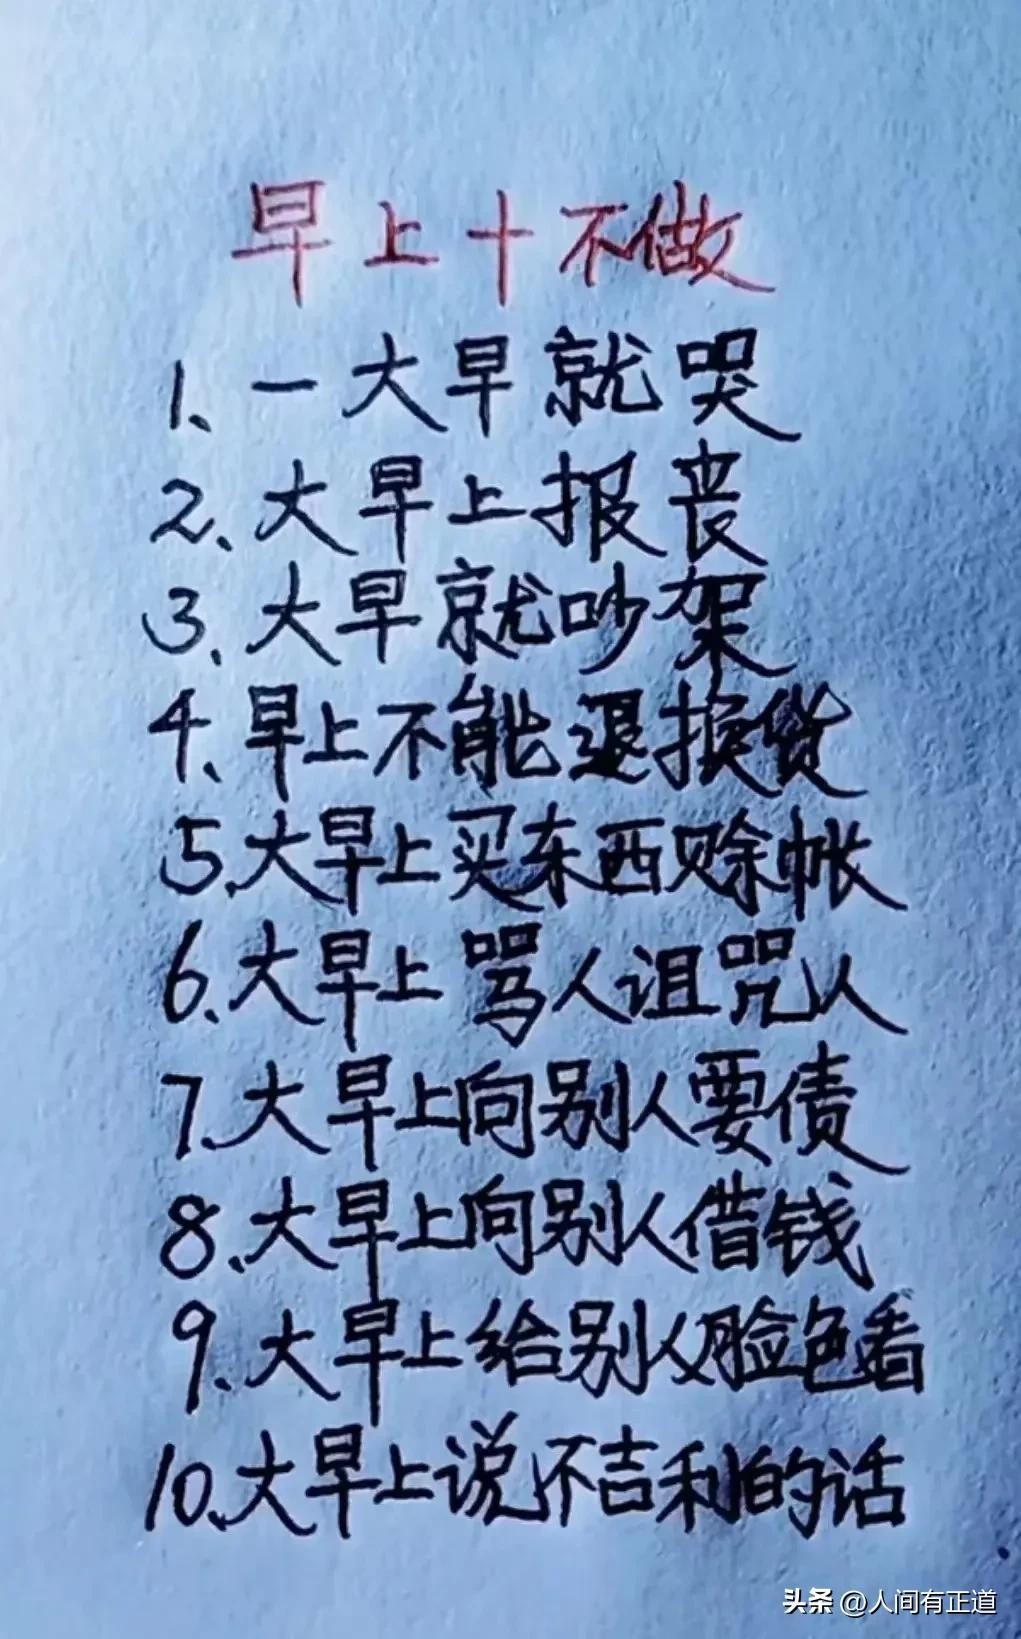 早上十不做
1、一大早就哭
2、大早上报丧
3、大早就吵架
4、早上不能退换货
5、大早上买东西赊帐
6、大早上骂人诅咒人
7、大早上向别人要债
8、大早上向别人借钱
9、大早上给别人脸色看
10、大早上说不吉利的话
头条 @人间有正道